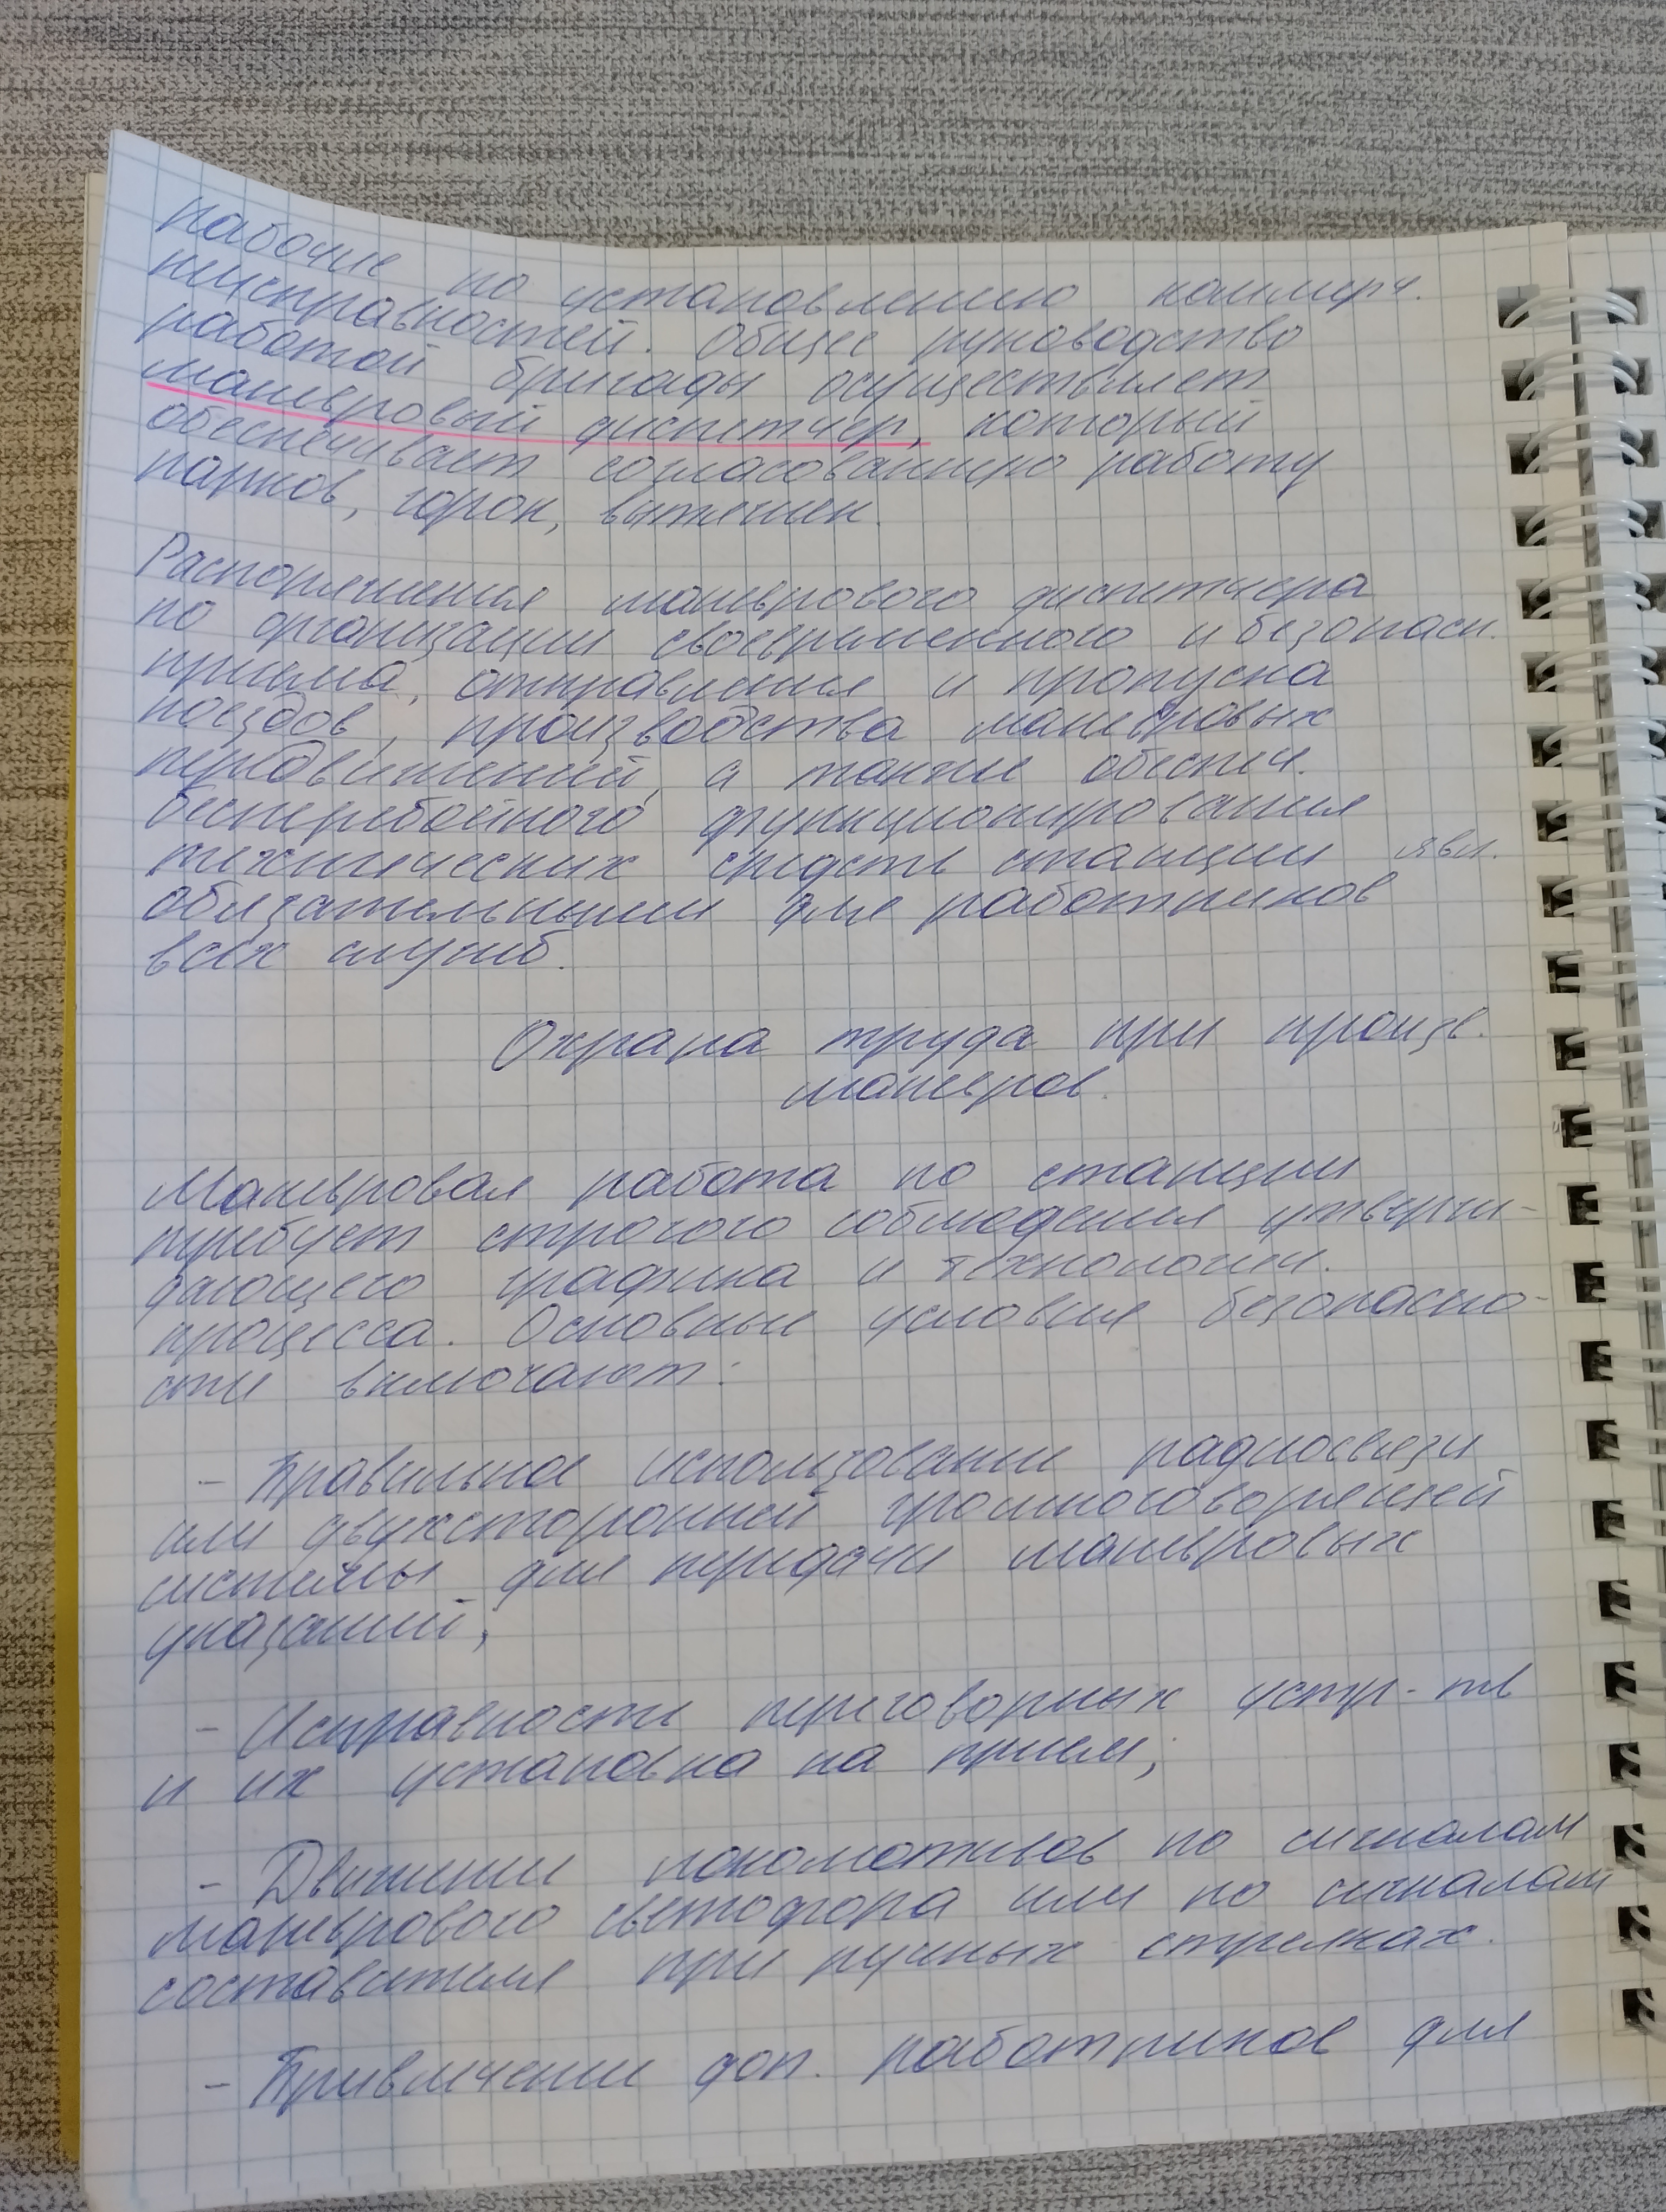 рабочие по установлению коммерч.
неисправностей. Общее руководство
работой бригады осуществляет
маневровый диспетчер, который
обеспечивает согласованную работу
парков, горок, вытяжек.
Распоряжения маневрового диспетчера
по организации своевременного и безопасн.
приема, отправления и пропуска
поездов, производства маневровых
передвижений, а также обеспеч.
бесперебойного функционирования
технических средств станции явл.
обязательными для работников
всех служб.
Охрана труда при произв.
маневров.
Маневровая работа по станции
требует строгого соблюдения утверж-
дающего графика и технологии.
процесса. Основные условия безопасно-
сти включают:
- Правильное использование радиосвязи
или двухсторонней громкоговорящей
системы для передачи маневровых
указаний;
- Исправности переговорных устр-тв
и их установка на прием;
- Движение локомотивов по сигналам
маневрового светофора или по сигналам
составителя при ручных стрелках.
- Привлечение доп. работников для